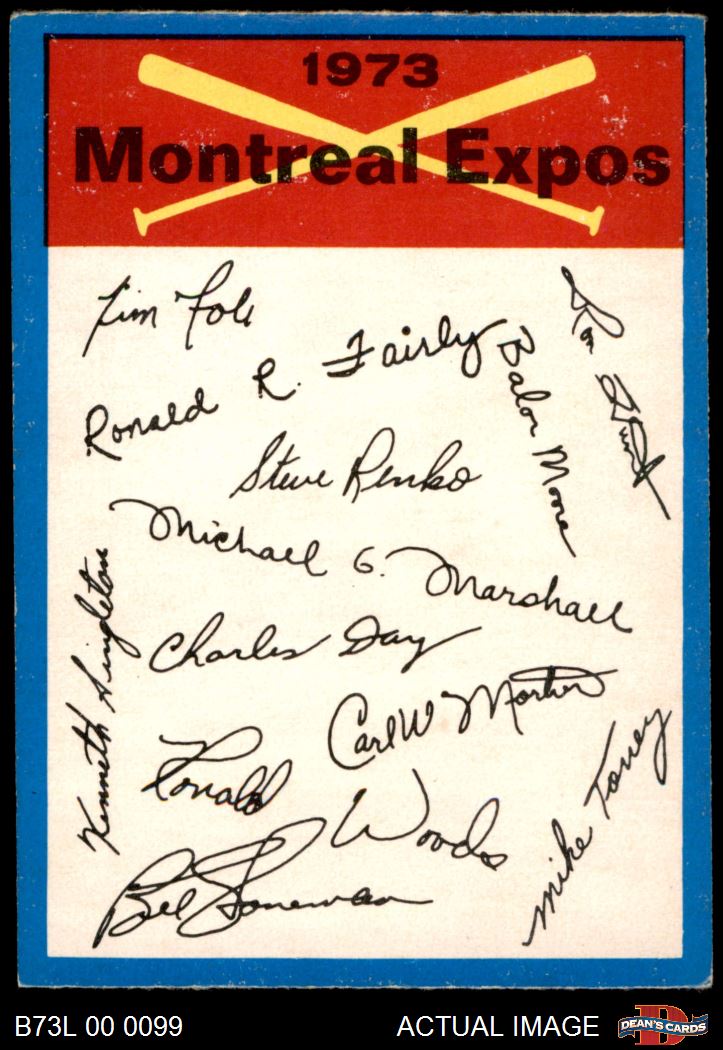 1973
Montreal Expos
Tim Foli
Ronald R. Fairly
Balor Moore
Ron Hunt
Steve Renko
Michael G. Marshall
Kenneth Singleton
Charles Day
Carl W Morton
Ronald Woods
Mike Torrez
Bill Stoneman
B73L 00 0099
ACTUAL IMAGE
D
DEAN'S CARDS